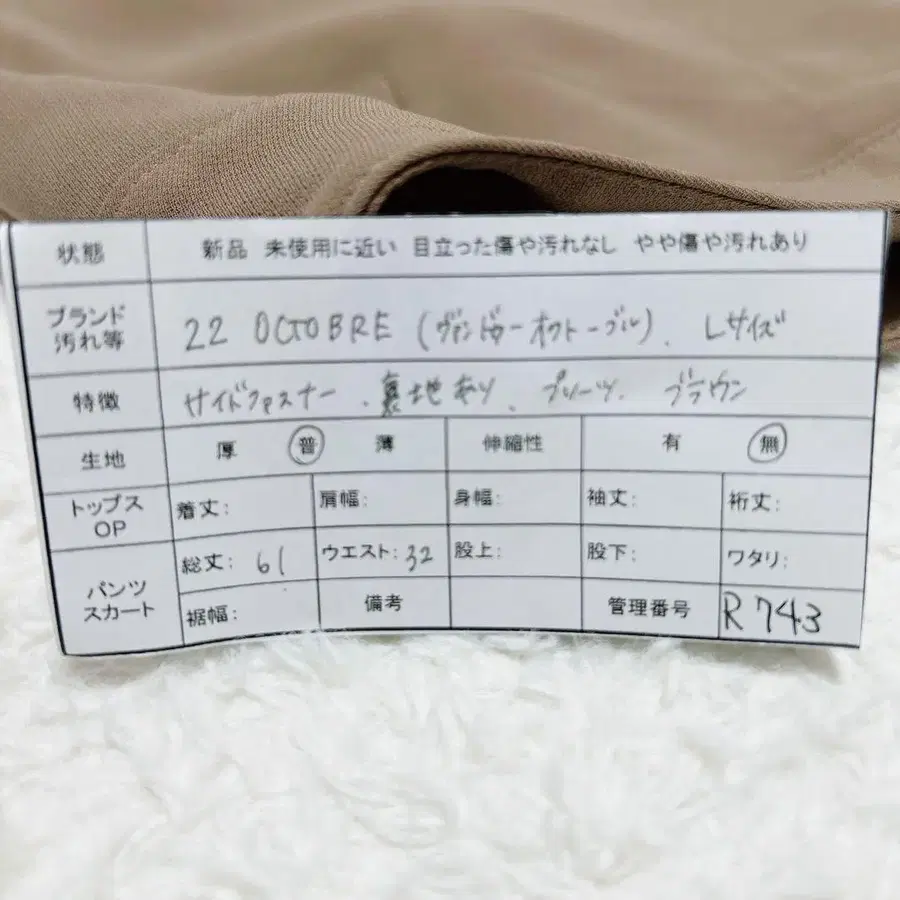 状態 新品 未使用に近い 目立った傷や汚れなし やや傷や汚れあり
ブランド
汚れ等 22 OCTOBRE (ヴァンドゥーオクトーブル)、Lサイズ
特徴 サイドファスナー、裏地あり、プリーツ、ブラウン
生地 厚 普 薄 伸縮性 有 無
トップス
OP 着丈: 肩幅: 身幅: 袖丈: 裄丈:
パンツ
スカート 総丈: 61 ウエスト: 32 股上: 股下: ワタリ:
裾幅: 備考 管理番号 R743